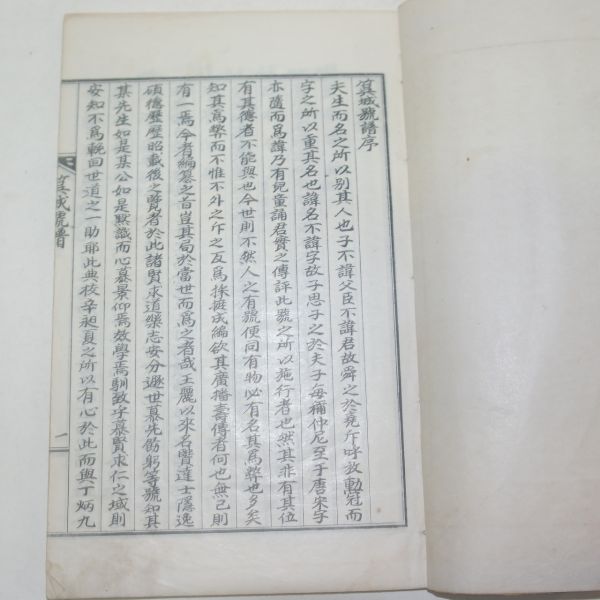 箕城號譜序
夫生而名之所以別其人也子不諱父臣不諱君故舜之於堯斥呼放勳冠而
字之所以重其名也諱名不諱字故子思子之於夫子每稱仲尼至于唐宋字
亦隨而爲諱乃有兒童誦君實之傳評此號之所以施行者也然其非有其位
有其德者不能與也今世則不然人之有號便同有物必有名其爲弊也多矣
知其爲弊而不惟不外之斥之反爲採摭成編欲其廣播壽傳者何也無已則
有一焉今者編纂之首豈其局於當世而爲之者哉王麗以來名賢達士隱逸
碩德歷歷昭載後之覽者於此諸賢求道樂志安分遯世慕先飭躬等號知其
某先生如是某公如是默識而心慕景仰焉效學焉馴致乎慕賢求仁之域則
安知不爲輓回世道之一助耶此典校辛昶夏之所以有心於此而與丁炳九
箕城號譜
一